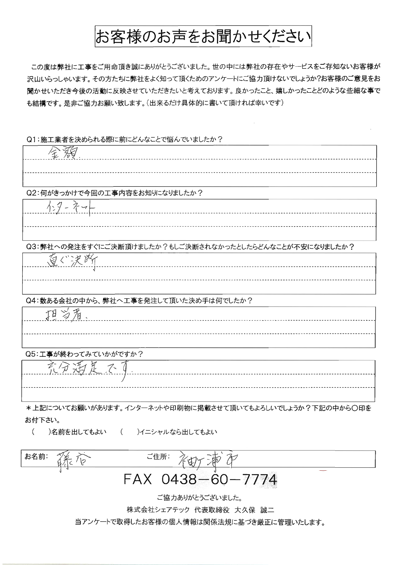 お客様のお声をお聞かせください
この度は弊社に工事をご用命頂き誠にありがとうございました。世の中には弊社の存在やサービスをご存知ないお客様が
沢山いらっしゃいます。その方たちに弊社をよく知って頂くためのアンケートにご協力頂けないでしょうか?お客様のご意見をお
聞かせいただき今後の活動に反映させていただきたいと考えております。良かったこと、嬉しかったことどのような些細な事で
も結構です。是非ご協力お願い致します。(出来るだけ具体的に書いて頂ければ幸いです)
Q1:施工業者を決められる際に前にどんなことで悩んでいましたか?
金額
Q2:何がきっかけで今回の工事内容をお知りになりましたか?
インターネット
Q3:弊社への発注をすぐにご決断頂けましたか?もしご決断されなかったとしたらどんなことが不安になりましたか?
直ぐ決断
Q4:数ある会社の中から、弊社へ工事を発注して頂いた決め手は何でしたか?
担当者.
Q5:工事が終わってみていかがですか?
充分満足です
*上記についてお願いがあります。インターネットや印刷物に掲載させて頂いてもよろしいでしょうか?下記の中から〇印を
お付下さい。
( )名前を出してもよい ( )イニシャルなら出してもよい
お名前: 藤谷 ご住所: 袖ヶ浦市
FAX 0438-60-7774
ご協力ありがとうございました。
株式会社シェアテック 代表取締役 大久保 誠二
当アンケートで取得したお客様の個人情報は関係法規に基づき厳正に管理いたします。